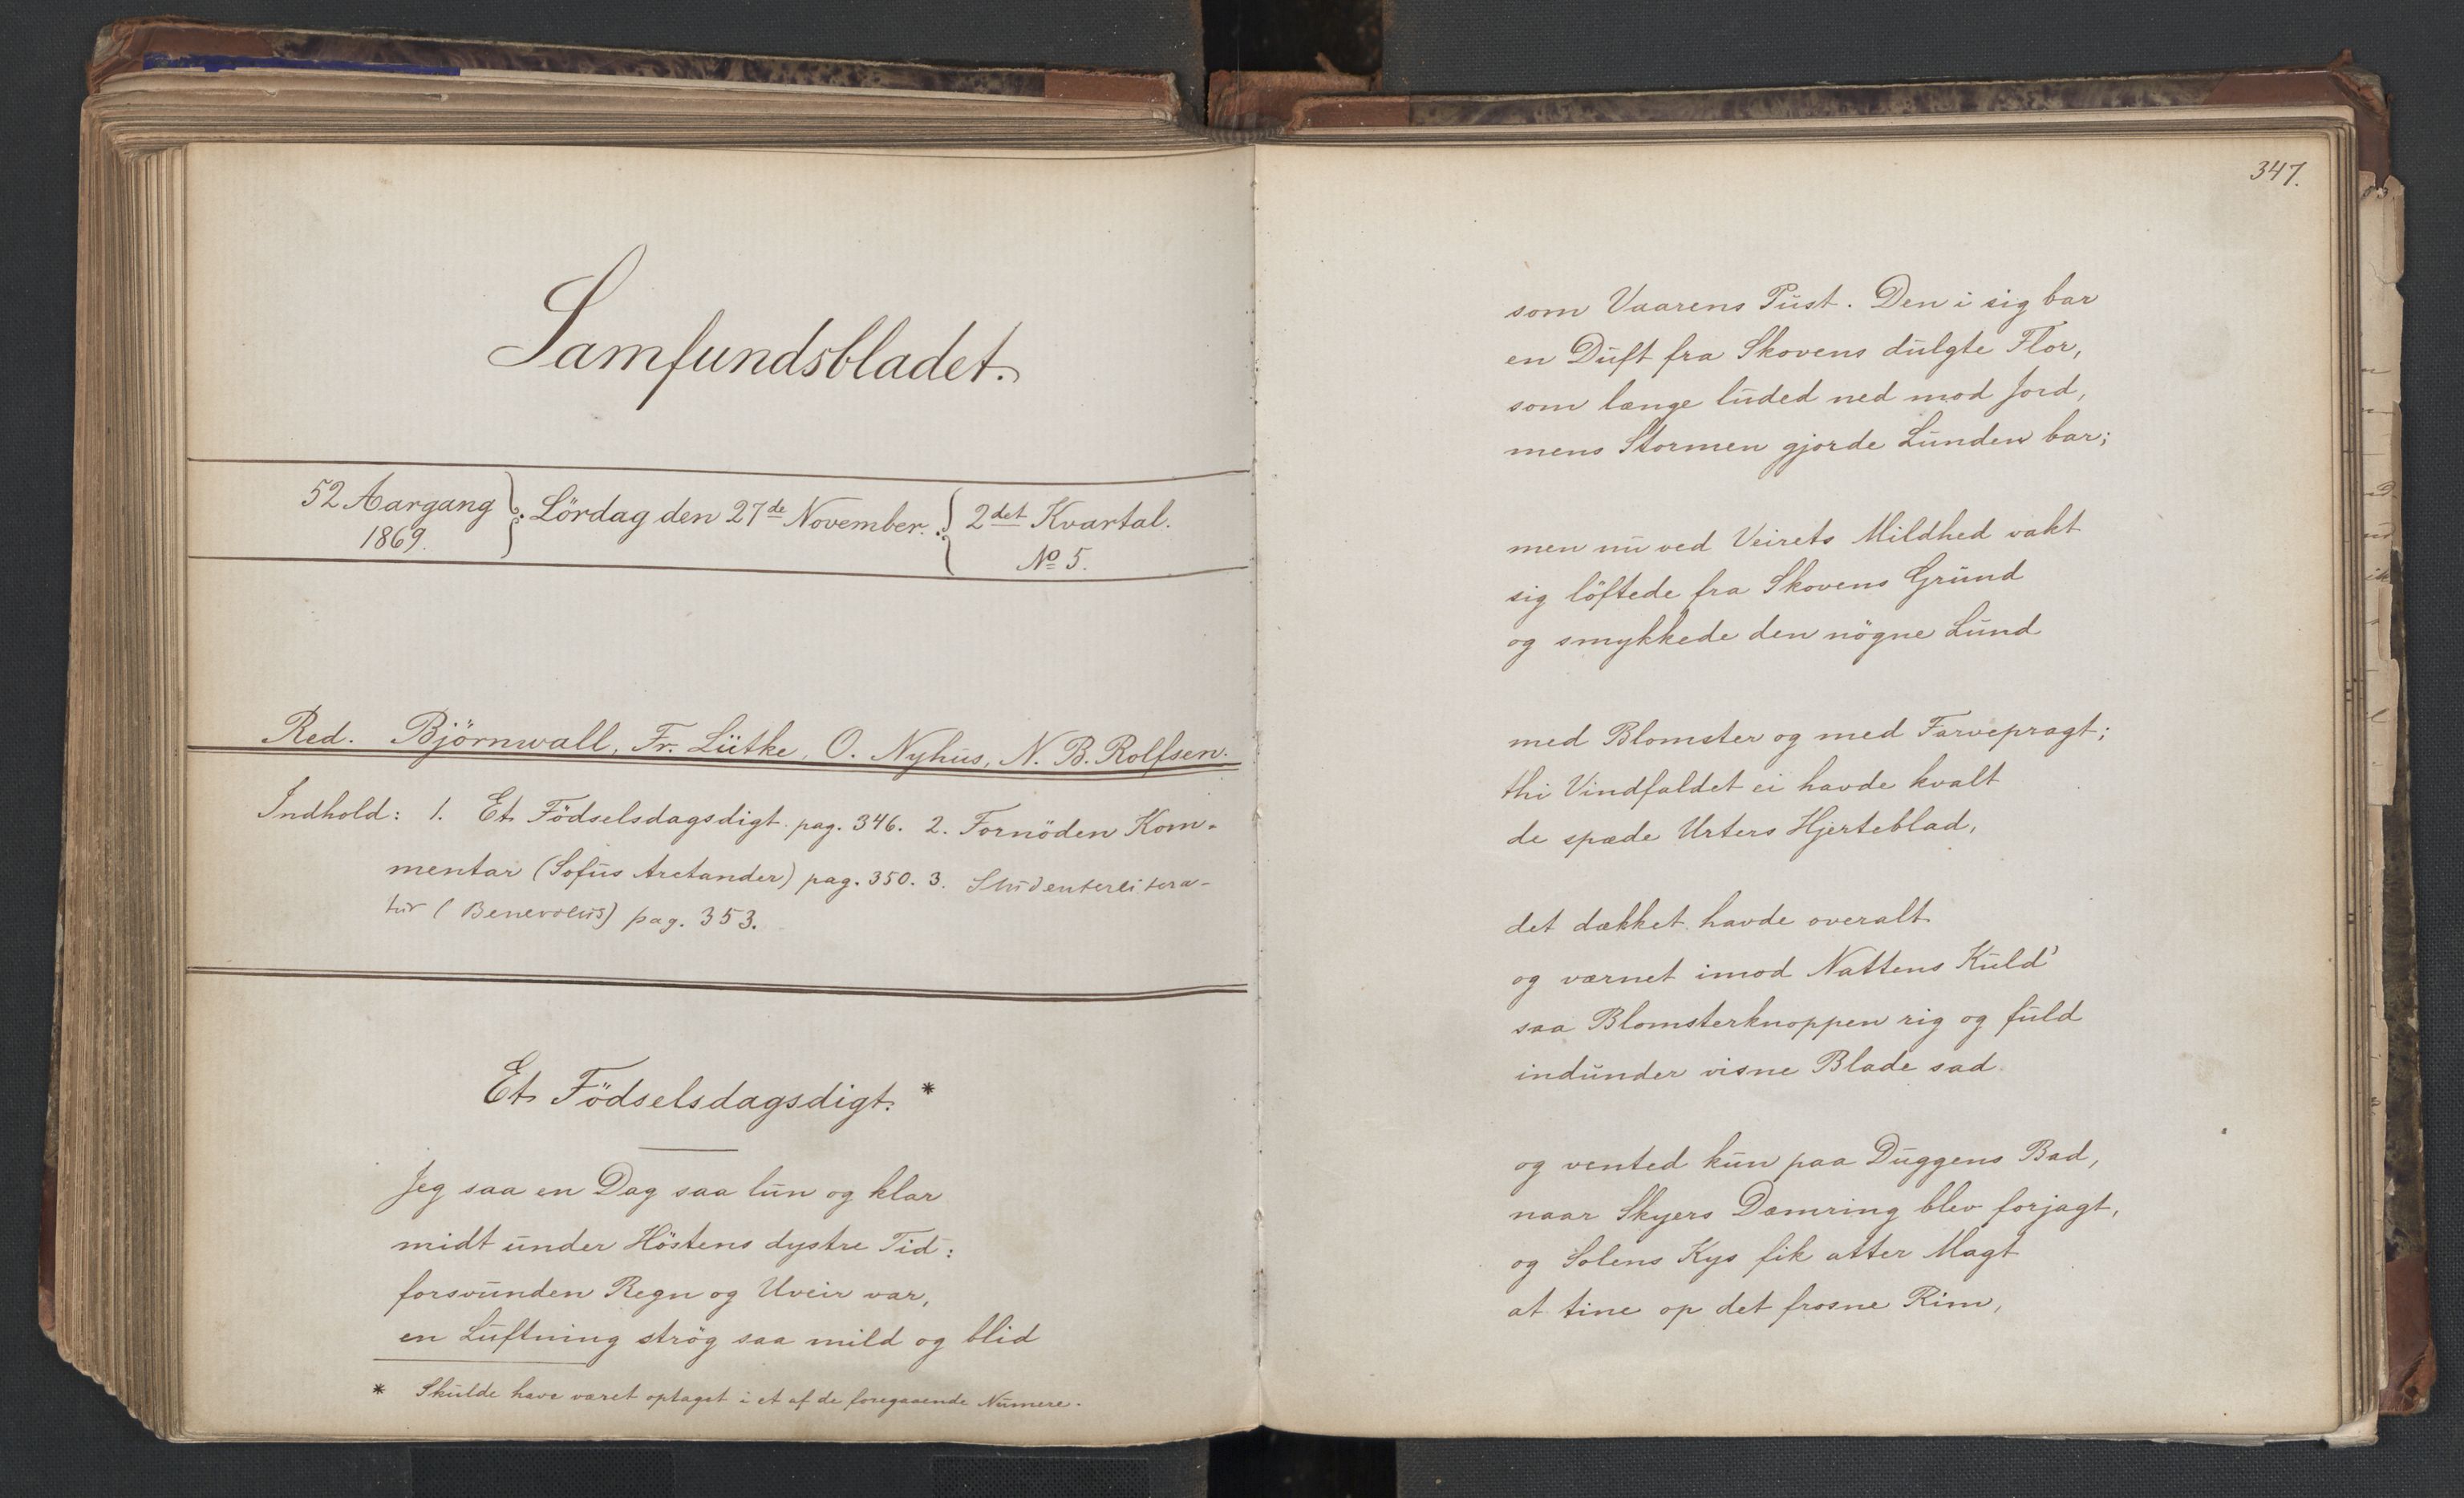 Samfundsbladet.
52 Aargang
1869.
Lördag den 27de November.
2det Kvartal.
No 5.
Red. Björnwall, Fr. Lütke, O. Nyhus, N. B. Rolfsen.
Indhold: 1. Et Födselsdagsdigt pag. 346. 2. Fornöden Kom-
mentar (Sofus Arctander) pag. 350. 3. Studenterlitera-
tur (Benevolus) pag. 353.
Et Födselsdagsdigt. *
Jeg saa en Dag saa lun og klar
midt under Höstens dystre Tid:
forsvunden Regn og Uveir var,
en Luftning strög saa mild og blid
* Skulde have været optaget i et af de foregaaende Numere.
347.
som Vaarens Pust. Den i sig bar
en Duft fra Skovens dulgte Flor,
som længe luded ned mod Jord,
mens Stormen gjorde Lunden bar;
men nu ved Veirets Mildhed vakt
sig löftede fra Skovens Grund
og smykkede den nögne Lund
med Blomster og med Farvepragt;
thi Vindfaldet ei havde kvalt
de spæde Urters Hjerteblad,
det dækket havde overalt
og værnet imod Nattens Kuld'
saa Blomsterknoppen rig og fuld
indunder visne Blade sad
og vented kun paa Duggens Bad,
naar Skyers Dæmring blev forjagt,
og Solens Kys fik atter Magt
at tine op det frosne Rim,